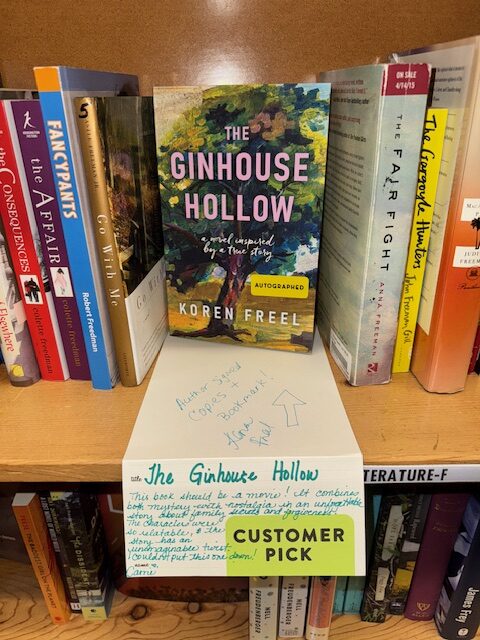 the CONSEQUENCES
colette freedman
KENSINGTON
the AFFAIR
colette freedman
FANCYPANTS
Robert Freedman
5
Go With Me
THE
GINHOUSE
HOLLOW
a novel inspired
by a true story
AUTOGRAPHED
KOREN FREEL
ON SALE
4/14/15
THE FAIR FIGHT
ANNA FREEMAN
The Gargoyle Hunters
John Freeman Gill
Author signed
Copies +
Bookmark!
TERATURE-F
The Ginhouse Hollow
This book should be a movie! It combines
both mystery with nostalgia in an unforgettable
story about family secrets and forgiveness!
The characters were
so relatable, & the
story has an
unimaginable twist.
I couldn't put this one down!
CUSTOMER
PICK
NELL
FREUDENBERGER
NELL
FREUDENBERGER
James Frey